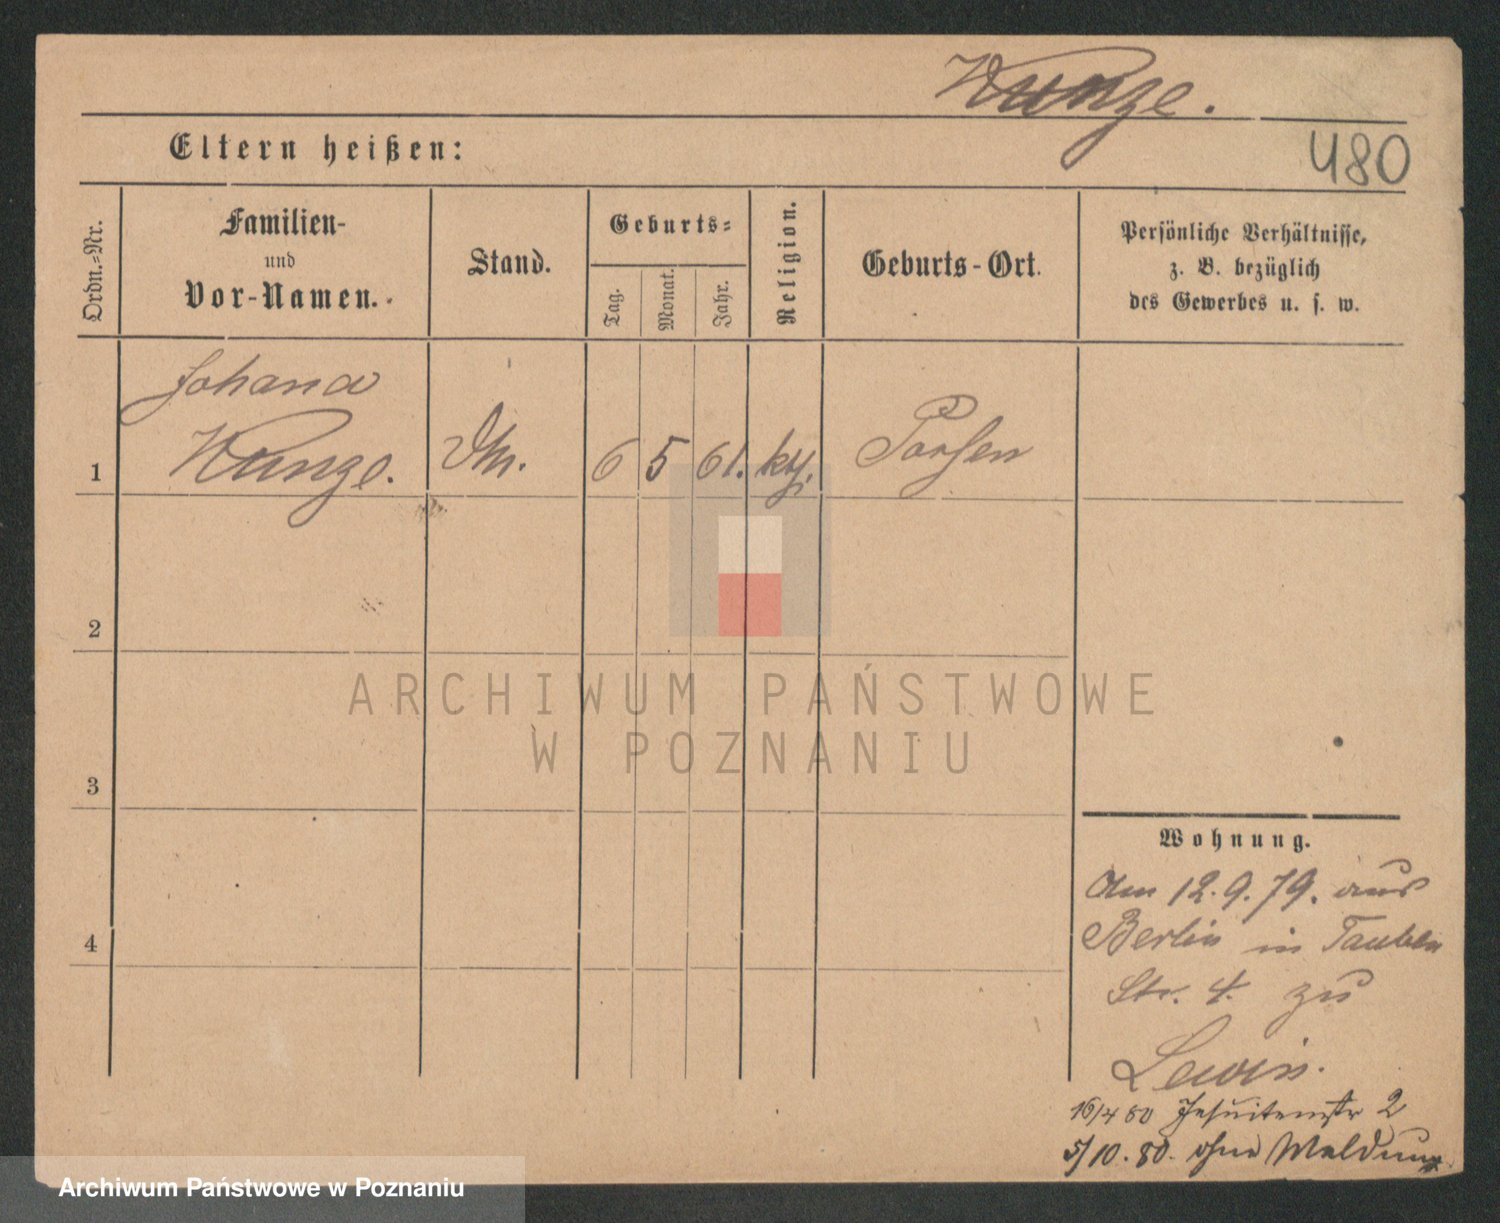 Wunge.
480
Eltern heißen:
Ordn.-Nr.
Familien-
und
Vor-Namen.
Stand.
Geburts-
Tag.
Monat.
Jahr.
Religion.
Geburts-Ort.
Persönliche Verhältnisse,
z. B. bezüglich
des Gewerbes u. s. w.
Johanna
1 Wunge. 6 5 61.
2
3
4
ARCHIWUM PAŃSTWOWE
W POZNANIU
Wohnung.
Am 12.9.79. aus
Berlin in Tauben
Str. 4. zu
Lewin.
16/4 80 Jesuitenstr 2
5/10.80. ohne Meldung
Archiwum Państwowe w Poznaniu